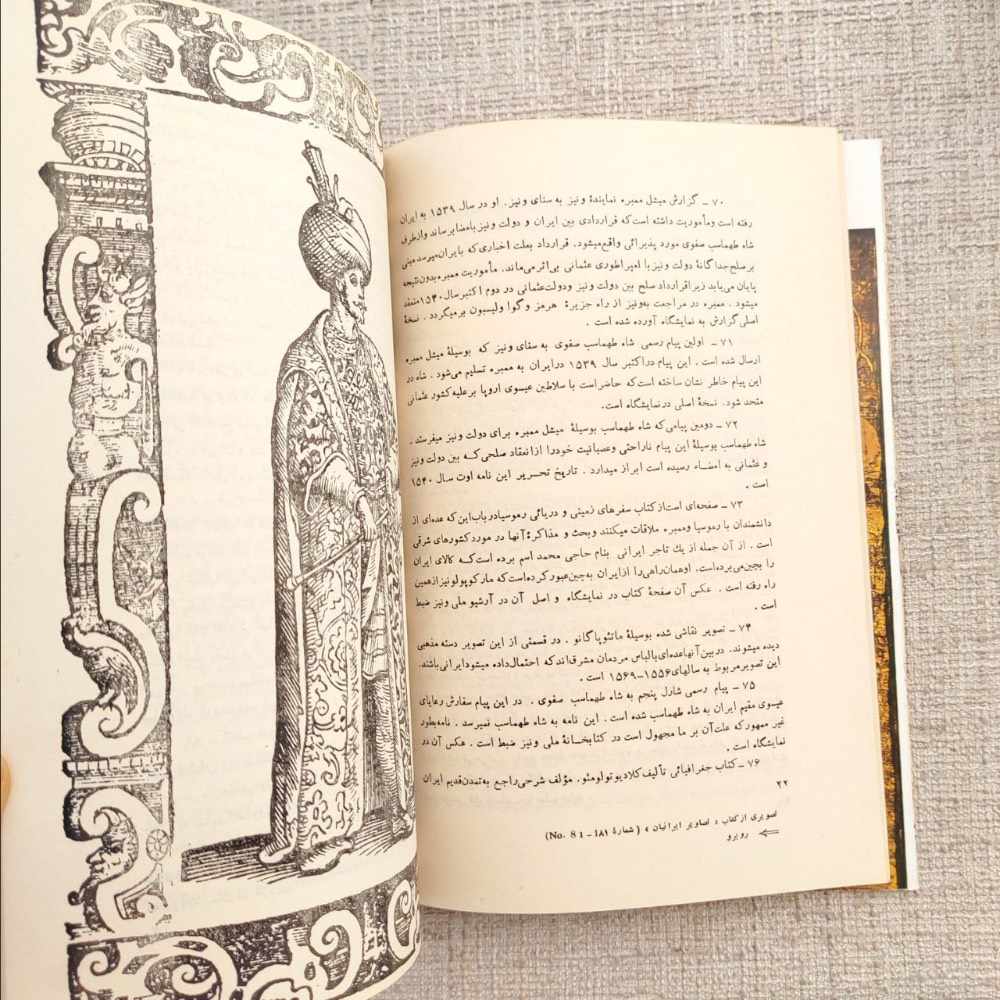 ۷۰ ــ گزارش میشل ممبره نمایندهٔ ونیز به سنای ونیز. او در سال ۱۵۳۹ به ایران
رفته است ومأموریت داشته است که قراردادی بین ایران و دولت ونیز بامضا برساند وازطرف
شاه طهماسب صفوی مورد پذیرائی واقع میشود. قرارداد بعلت اخباری که بایران میرسد مبنی
برصلح جداگانهٔ دولت ونیز با امپراطوری عثمانی بی‌اثر می‌ماند. مأموریت ممبره بدون نتیجه
پایان می‌یابد زیرا قرارداد صلح بین دولت ونیز ودولت عثمانی در دوم اکتبر سال ۱۵۴۰ منعقد
میشود. ممبره در مراجعت به‌ونیز از راه جزیرهٔ هرمز و گوا ولیسبون برمیگردد. نسخهٔ
اصلی گزارش به نمایشگاه آورده شده است .
۷۱ ــ اولین پیام رسمی شاه طهماسب صفوی به سنای ونیز که بوسیلهٔ میشل ممبره
ارسال شده است. این پیام دراکتبر سال ۱۵۳۹ درایران به ممبره تسلیم می‌شود. شاه در
این پیام خاطر نشان ساخته است که حاضر است با سلاطین عیسوی اروپا برعلیه کشور عثمانی
متحد شود. نسخهٔ اصلی در نمایشگاه است.
۷۲ ــ دومین پیامی که شاه طهماسب بوسیلهٔ میشل ممبره برای دولت ونیز میفرستد.
شاه طهماسب بوسیلهٔ این پیام ناراحتی وعصبانیت خودرا ازانعقاد صلحی که بین دولت ونیز
و عثمانی به امضاء رسیده است ابراز میدارد. تاریخ تحریر این نامه اوت سال ۱۵۴۰
است .
۷۳ ــ صفحه‌ای است از کتاب سفرهای زمینی و دریائی رموسیا درباب این که عده‌ای از
دانشمندان با رموسیا وممبره ملاقات میکنند و بحث و مذاکرهٔ آنها در مورد کشورهای شرقی
است . از آن جمله از یك تاجر ایرانی بنام حاجی محمد اسم برده است که کالای ایران
را بچین می‌برده است. او همان راهی را از ایران به چین عبور کرده است که مارکوپولو نیز از همین
راه رفته است. عکس آن صفحهٔ کتاب در نمایشگاه و اصل آن در آرشیو ملی ونیز ضبط
است .
۷۴ ــ تصویر نقاشی شده بوسیلهٔ ماتئوپاگانو. در قسمتی از این تصویر دسته مذهبی
دیده میشوند. دربین آنها عده‌ای بالباس مردمان مشرق‌اند که احتمال داده میشود ایرانی باشند.
این تصویر مربوط به سالهای ۱۵۵۶–۱۵۶۹ است .
۷۵ ــ پیام رسمی شارل پنجم به شاه طهماسب صفوی. در این پیام سفارش رعایای
عیسوی مقیم ایران به شاه طهماسب شده است. این نامه به شاه طهماسب نمیرسد. نامه‌بطور
غیر ممهور که علت‌آن بر ما مجهول است در کتابخانهٔ ملی ونیز ضبط است. عکس آن در
نمایشگاه است .
۷۶ ــ کتاب جغرافیائی تألیف کلادیوتولومئو. مؤلف شرحی راجع به‌تمدن‌قدیم ایران
۲۲
تصویری از کتاب « تصاویر ایرانیان » ( شمارهٔ ۱۸۱ – No. 81)
روبرو